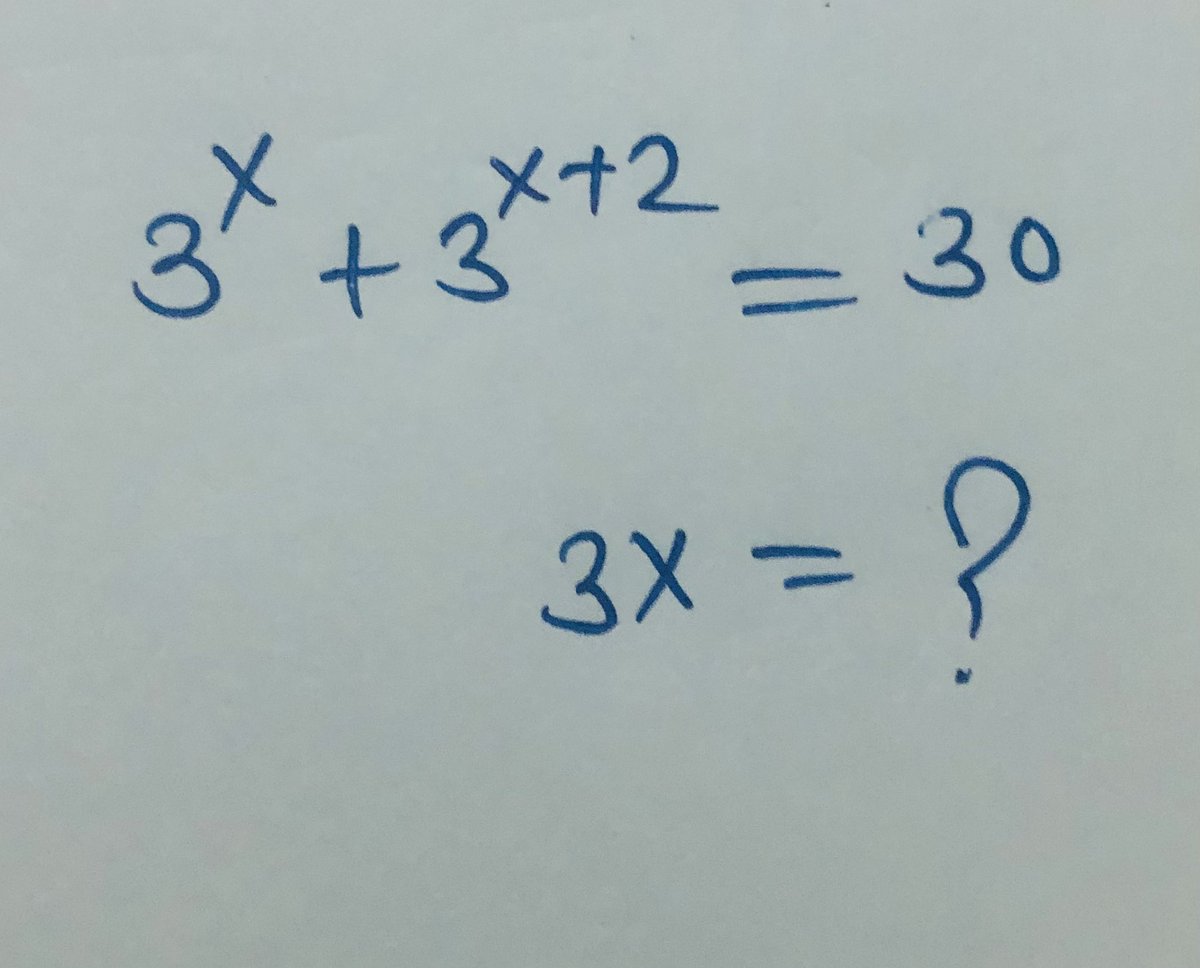 3^x + 3^x+2 = 30
3x = ?